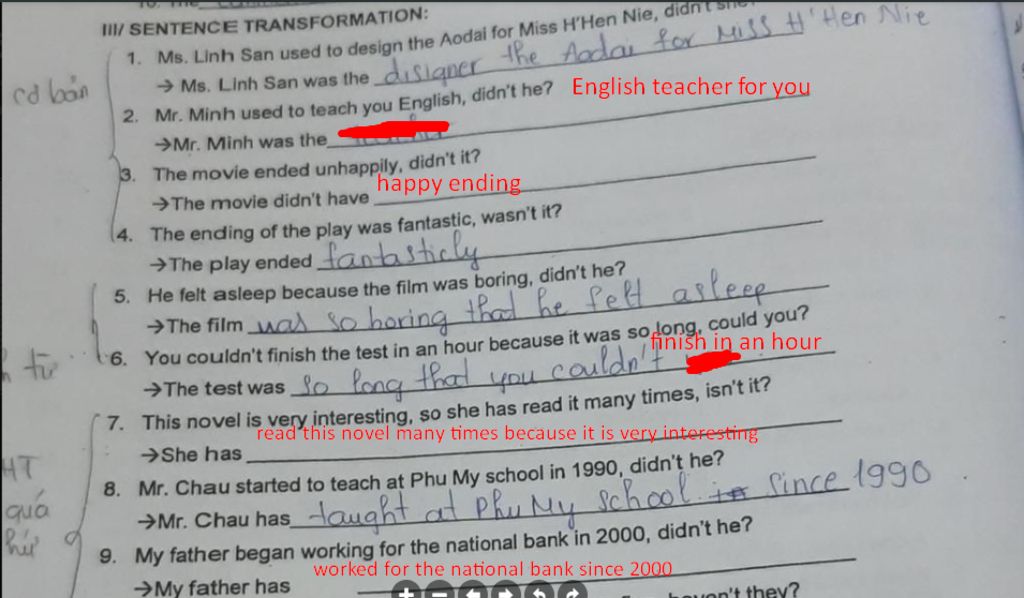 III/ SENTENCE TRANSFORMATION:
1. Ms. Linh San used to design the Aodai for Miss H'Hen Nie, didn't
→ Ms. Linh San was the disigner the Aodai for Miss H'Hen Nie
cơ bản
2. Mr. Minh used to teach you English, didn't he? English teacher for you
→Mr. Minh was the
3. The movie ended unhappily, didn't it?
→The movie didn't have happy ending
4. The ending of the play was fantastic, wasn't it?
→The play ended fantasticly
5. He felt asleep because the film was boring, didn't he?
→The film was so boring that he felt asleep
6. You couldn't finish the test in an hour because it was so long, could you?
→The test was so long that you couldn't finish in an hour
từ
7. This novel is very interesting, so she has read it many times, isn't it?
read this novel many times because it is very interesting
→She has
HT
8. Mr. Chau started to teach at Phu My school in 1990, didn't he?
→Mr. Chau has taught at Phu My School since 1990
quá
9. My father began working for the national bank in 2000, didn't he?
worked for the national bank since 2000
→My father has
haven't they?